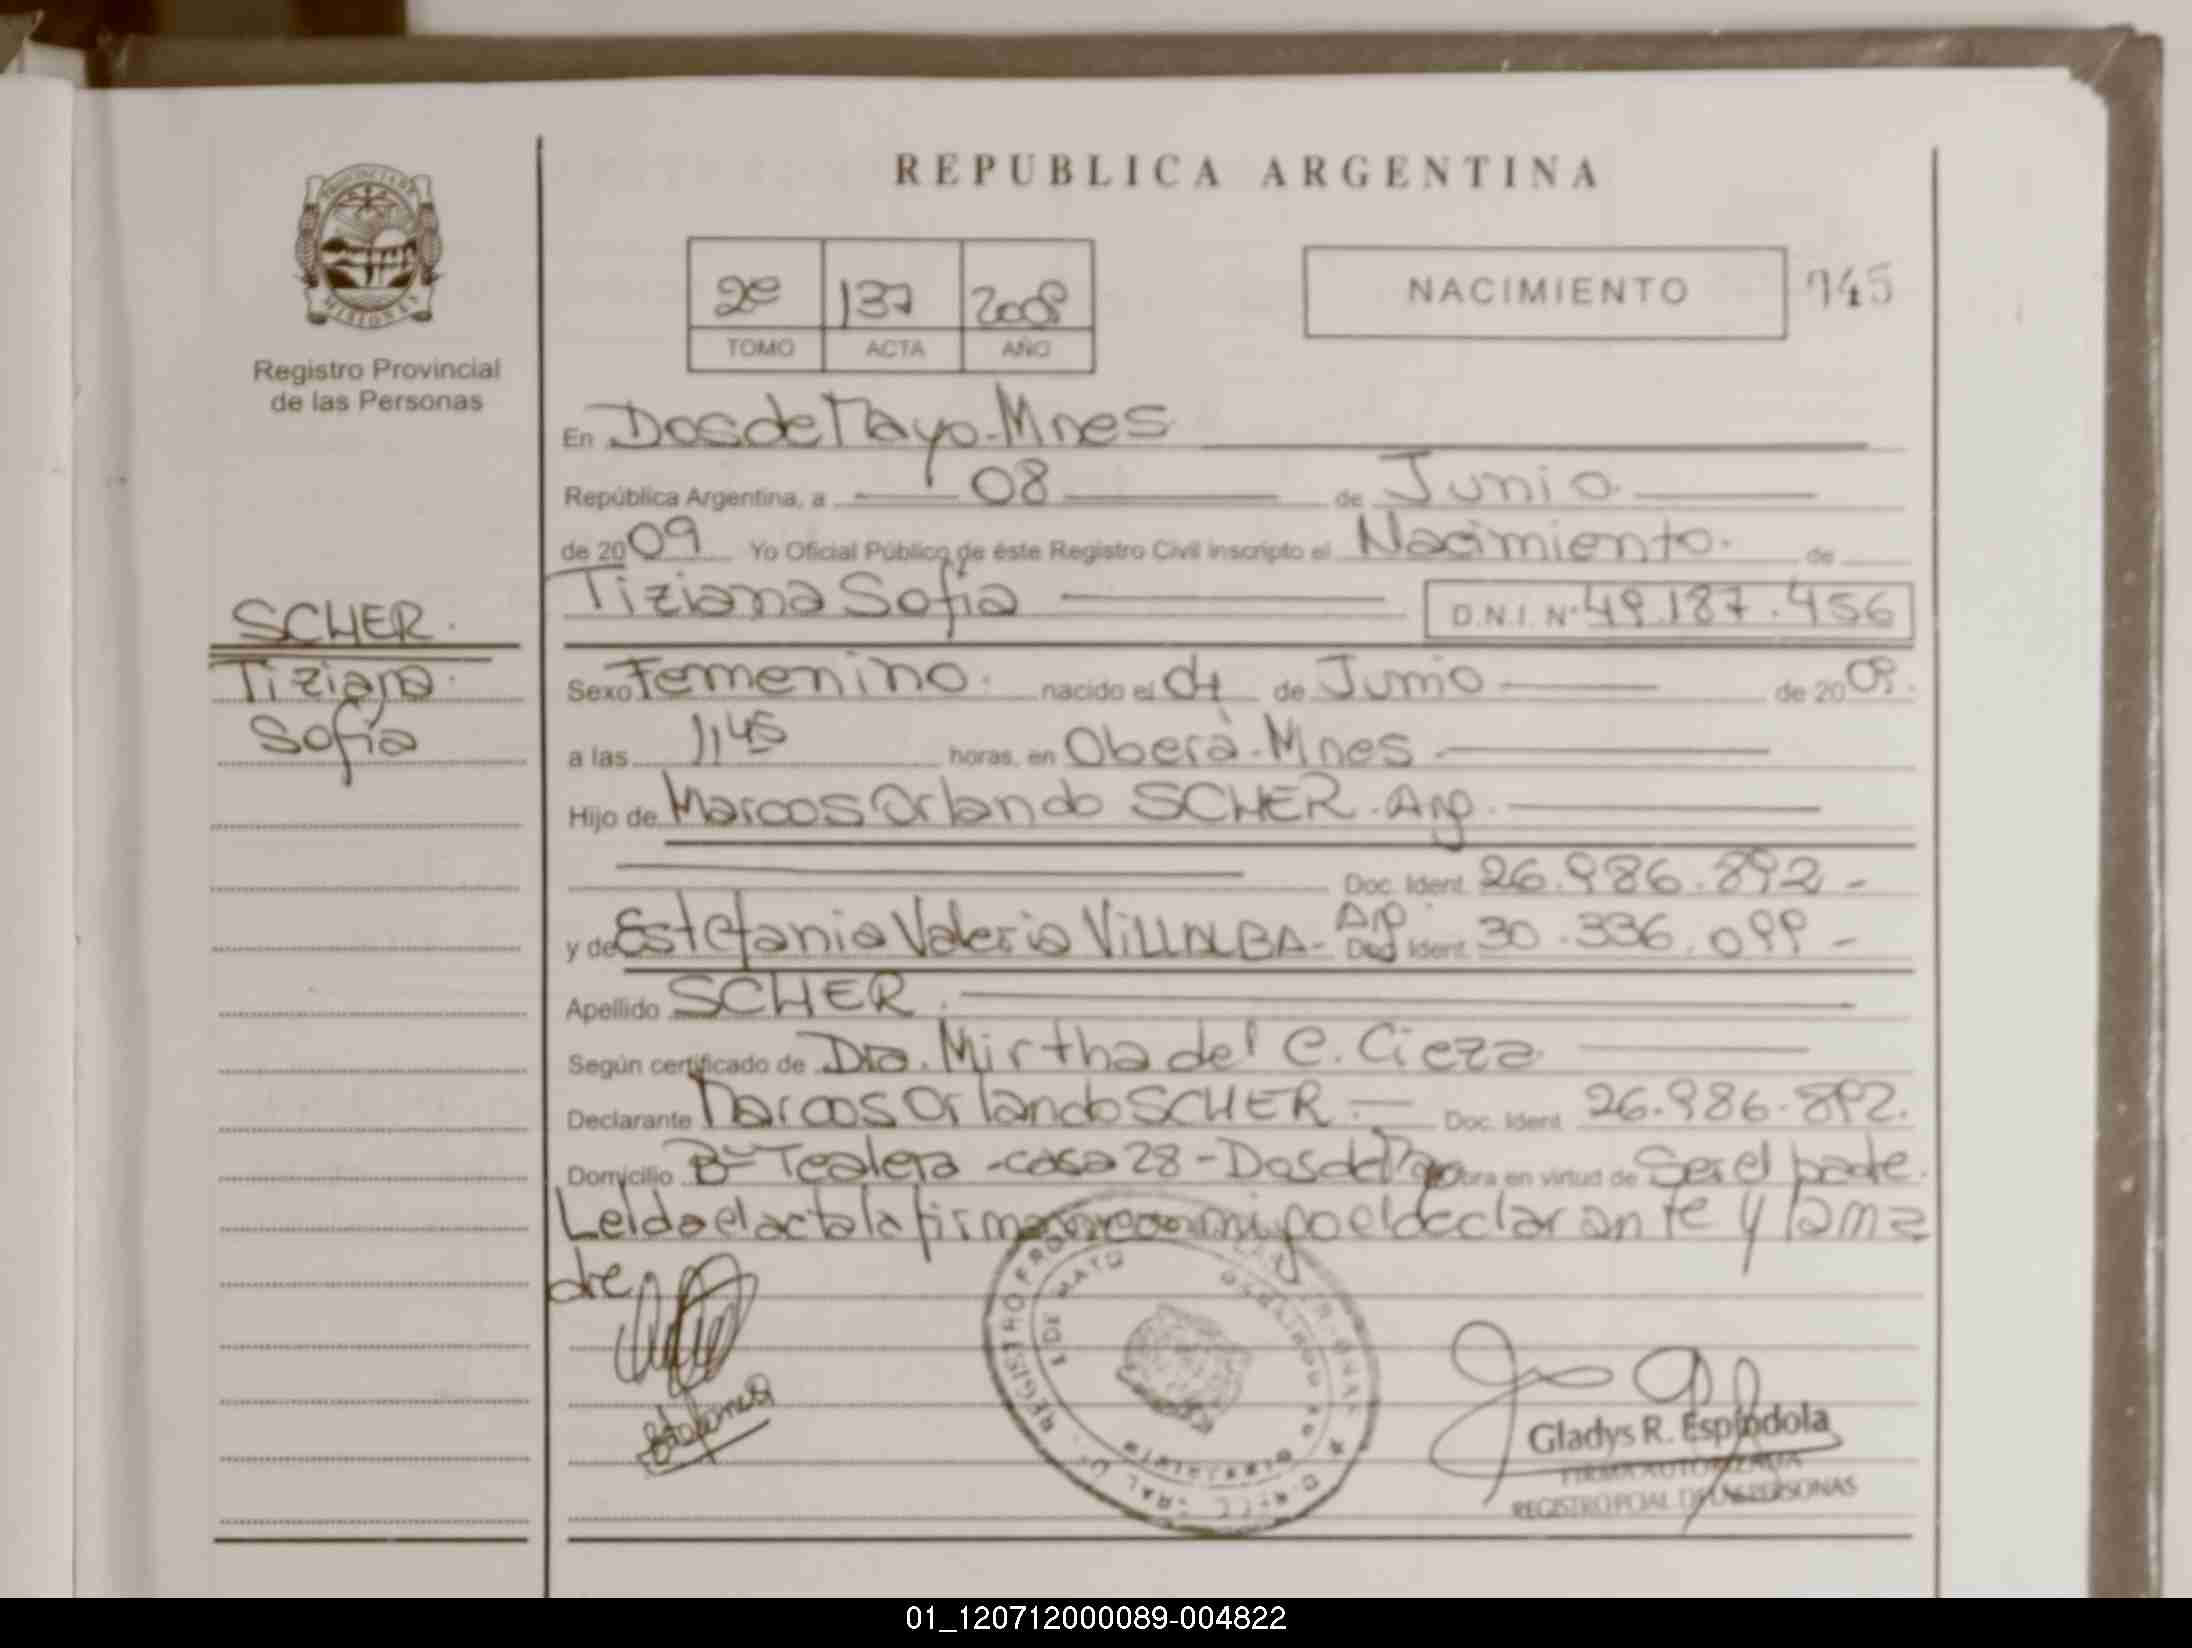 REPUBLICA ARGENTINA
PROVINCIA DE
MISIONES
Registro Provincial
de las Personas
2º 137 2009
TOMO ACTA AÑO
NACIMIENTO 145
En Dos de Mayo - Mnes
República Argentina, a 08 de Junio
de 2009 Yo Oficial Público de éste Registro Civil inscripto el Nacimiento. de
Tiziana Sofia D.N.I. Nº 49.187.456
SCHER.
Tiziana
Sofía
Sexo Femenino. nacido el 04 de Junio de 2009.
a las 11 45 horas, en Oberá - Mnes
Hijo de Marcos Orlando SCHER - Arg.
Doc. Ident. 26.986.892 -
y de Estefania Valeria VILLALBA - Arg. Doc. Ident. 30.336.099 -
Apellido SCHER.
Según certificado de Dra. Mirtha del C. Cieza
Declarante Marcos Orlando SCHER - Doc. Ident. 26.986.892.
Domicilio Bº Tealera - casa 28 - Dos de Mayo Obra en virtud de Ser el padre.
Leída el acta la firman conmigo el declarante y la ma
dre
Gladys R. Espíndola
FIRMA AUTORIZADA
REGISTRO PCIAL. DE LAS PERSONAS
01_120712000089-004822